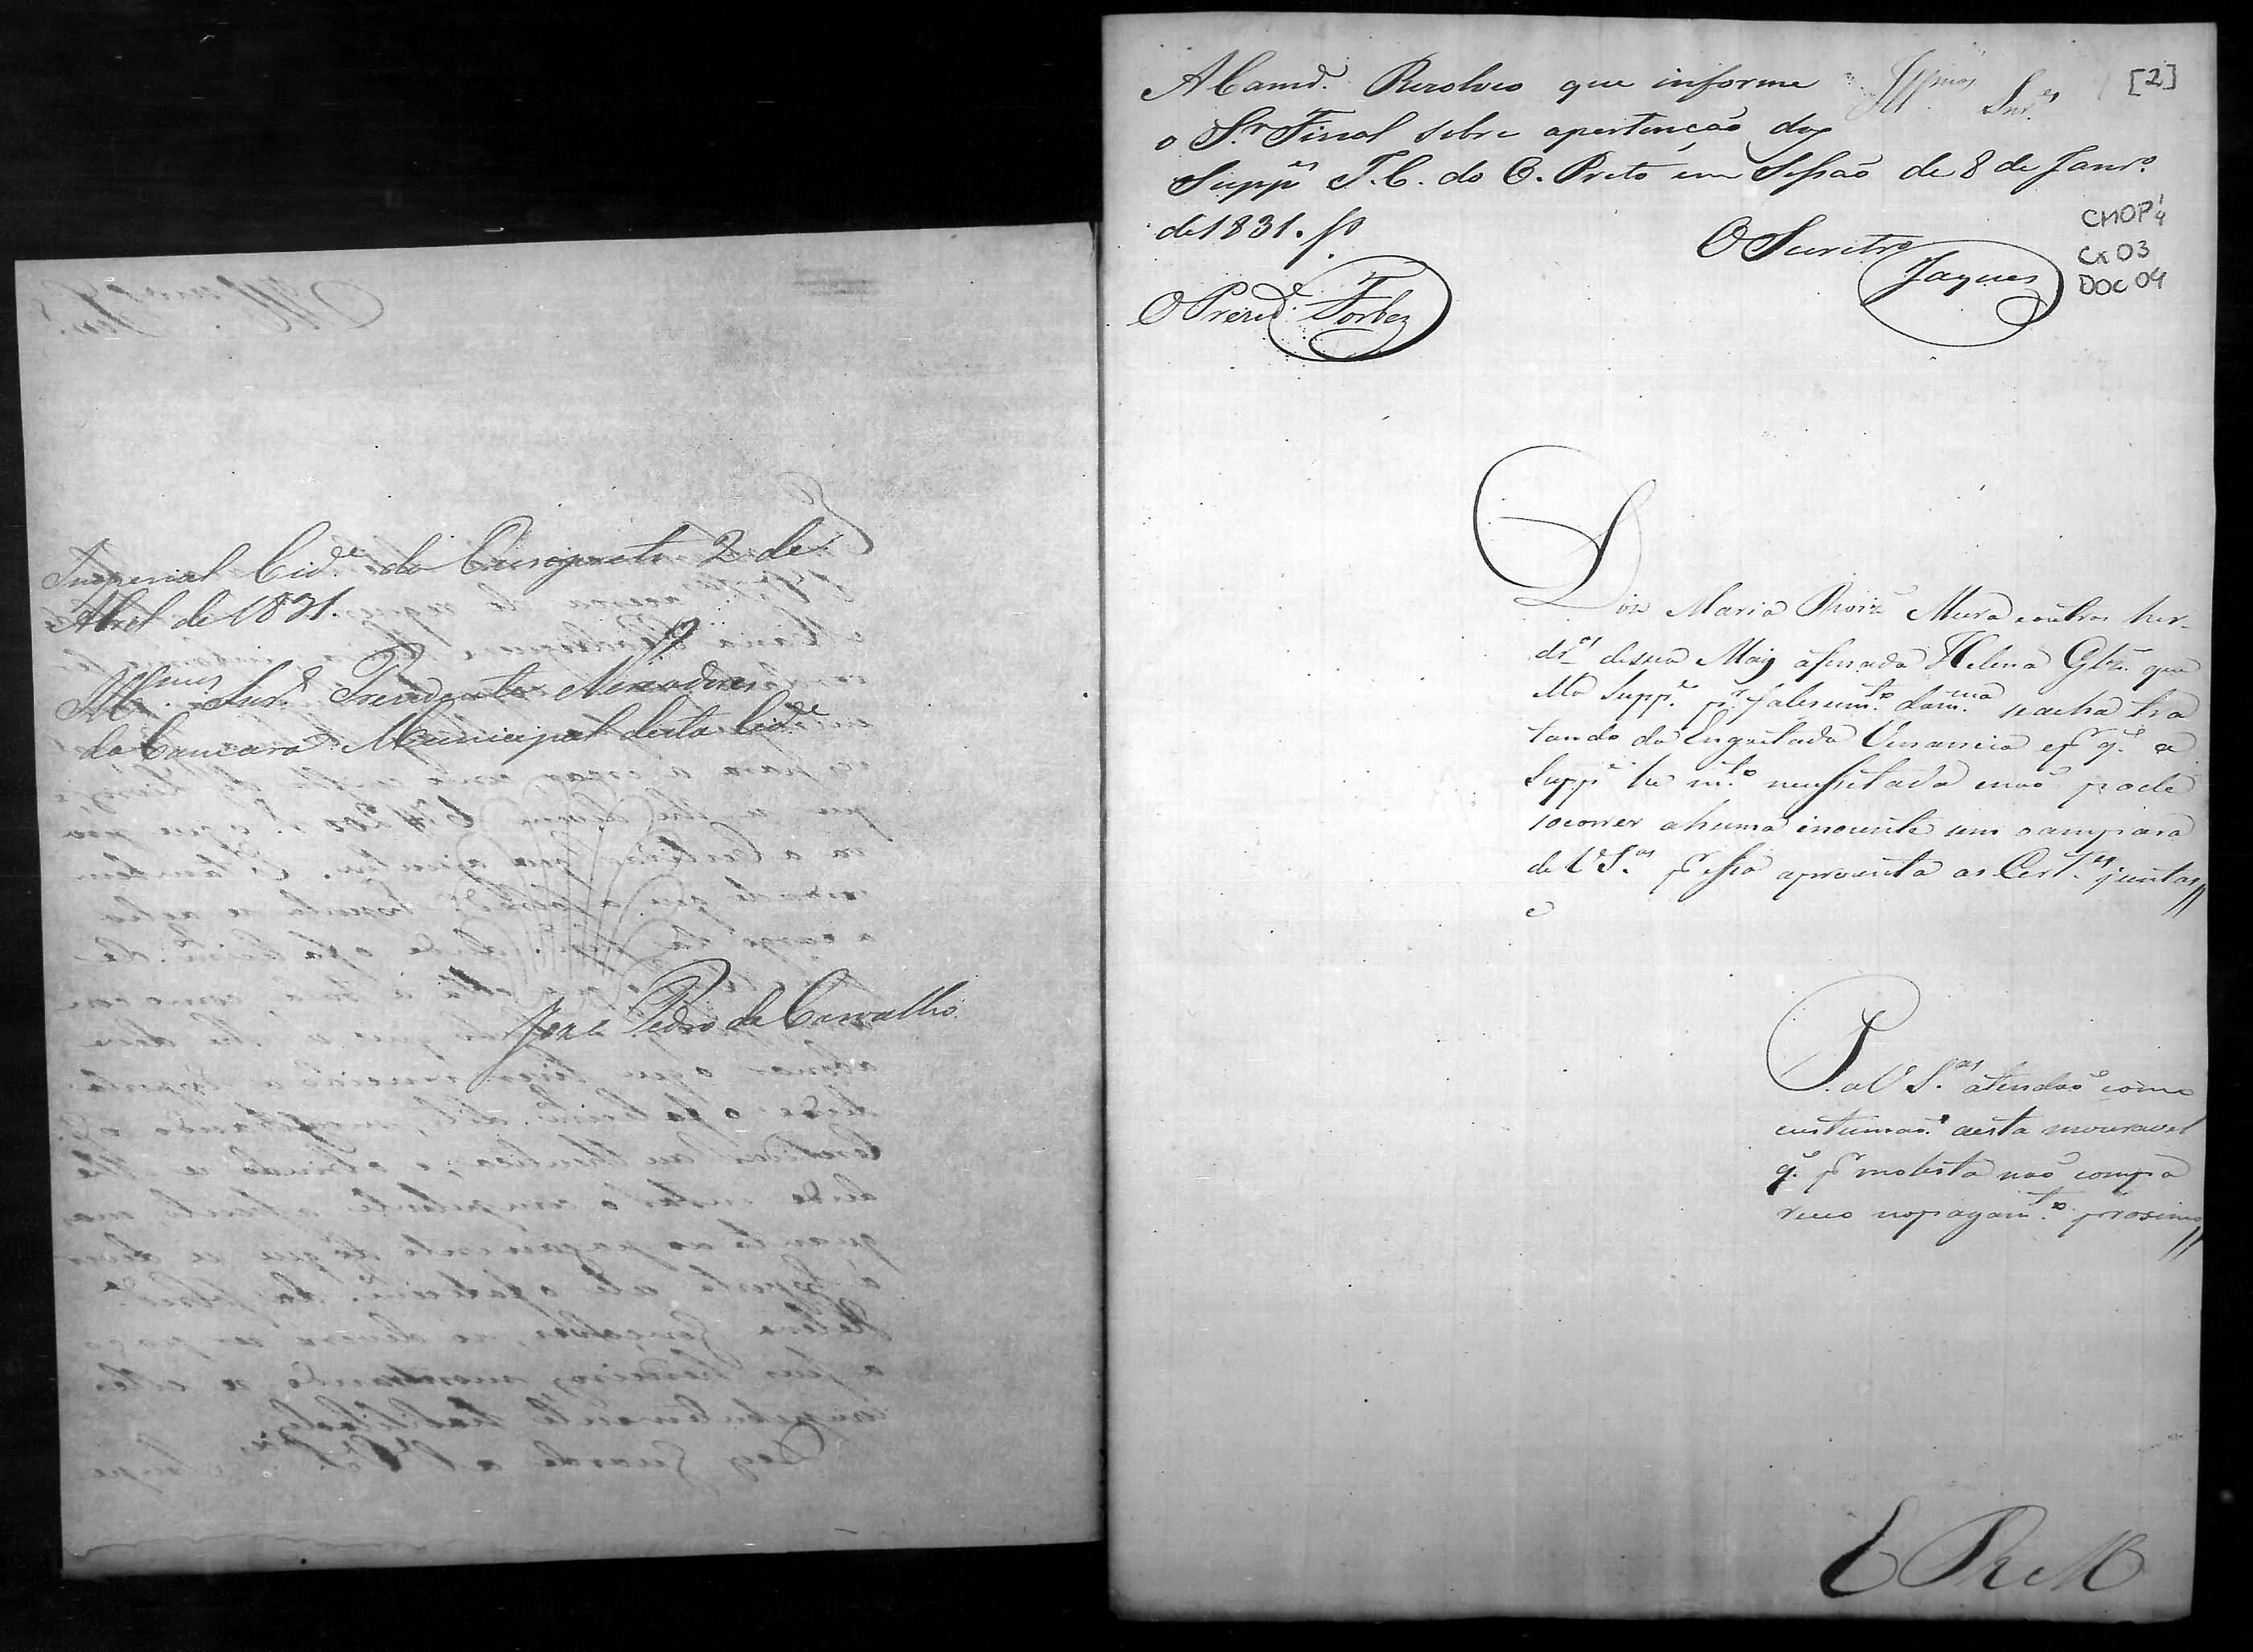 Imperial Cid.e do Ouropreto 2 de
Abril de 1831.
Ill.mos Snr.es Prezidente e Vereadores
da Camara Municipal desta Cid.e
Joze Pedro de Carvalho.
[2]
Ill.mos Snr.es
A Camr.a Rezolveo que informe
o S.r Fiscal sobre apertenção dos
Supp.es I. C. do O. Preto em Sessão de 8 de Janr.o
de 1831.
O Secretr.o
Jaques
O Prezid.e Forbes
CMOP 1/4
Cx 03
DOC 04
Diz Maria Roiz Mura e outros her-
dr.os desua May afinada Helena Glz. que
ella Supp.e p.r falecim.to dam.ma se acha tra
tando da Engeitada Venancia e p.r q.e a
Supp.e he m.to necessitada enaõ pode
socorrer ahuma inocente sem o amparo
de V S.as p.r isso aprezenta as Cert.es juntas
e
P. a V S.as atendaõ como
custumaõ aesta mizeravel
q.e p.r molesta naõ compa
receo nopagam.to proximo
E R M